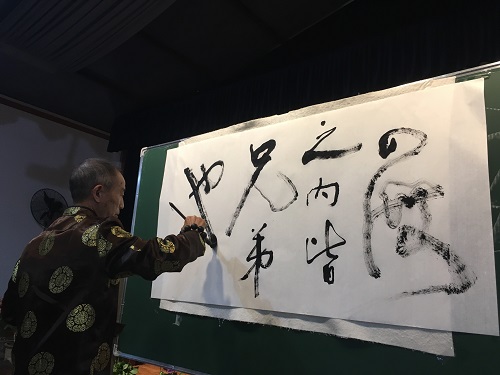 四海
之内皆
兄弟
也